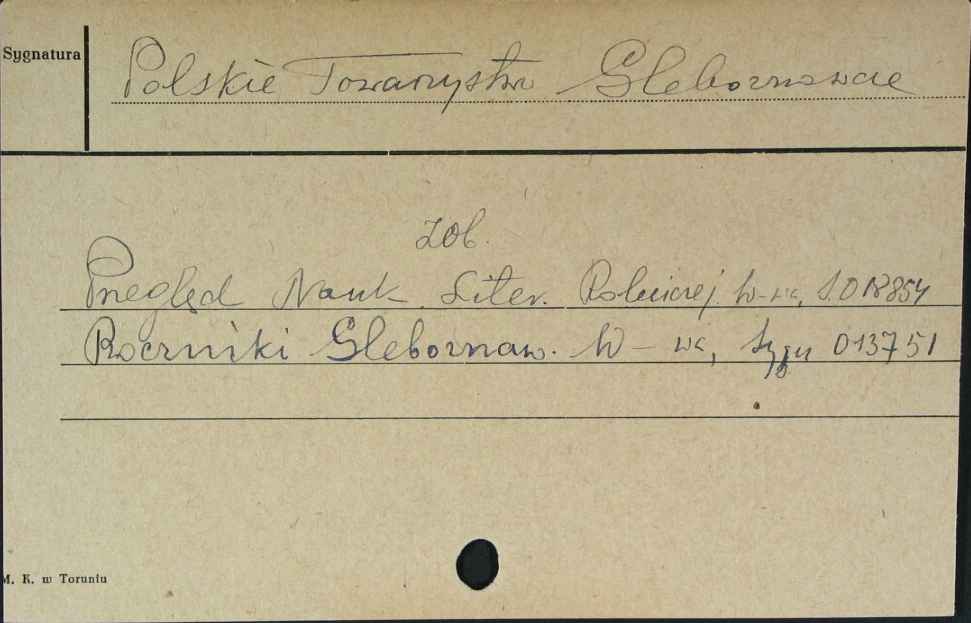 Sygnatura
Polskie Towarzystwo Gleboznawcze
zob.
Przegląd Nauk. Liter. Rolniczej W-wa, S. 013854
Roczniki Gleboznaw. W-wa, Sygn 013751
M. K. w Toruniu